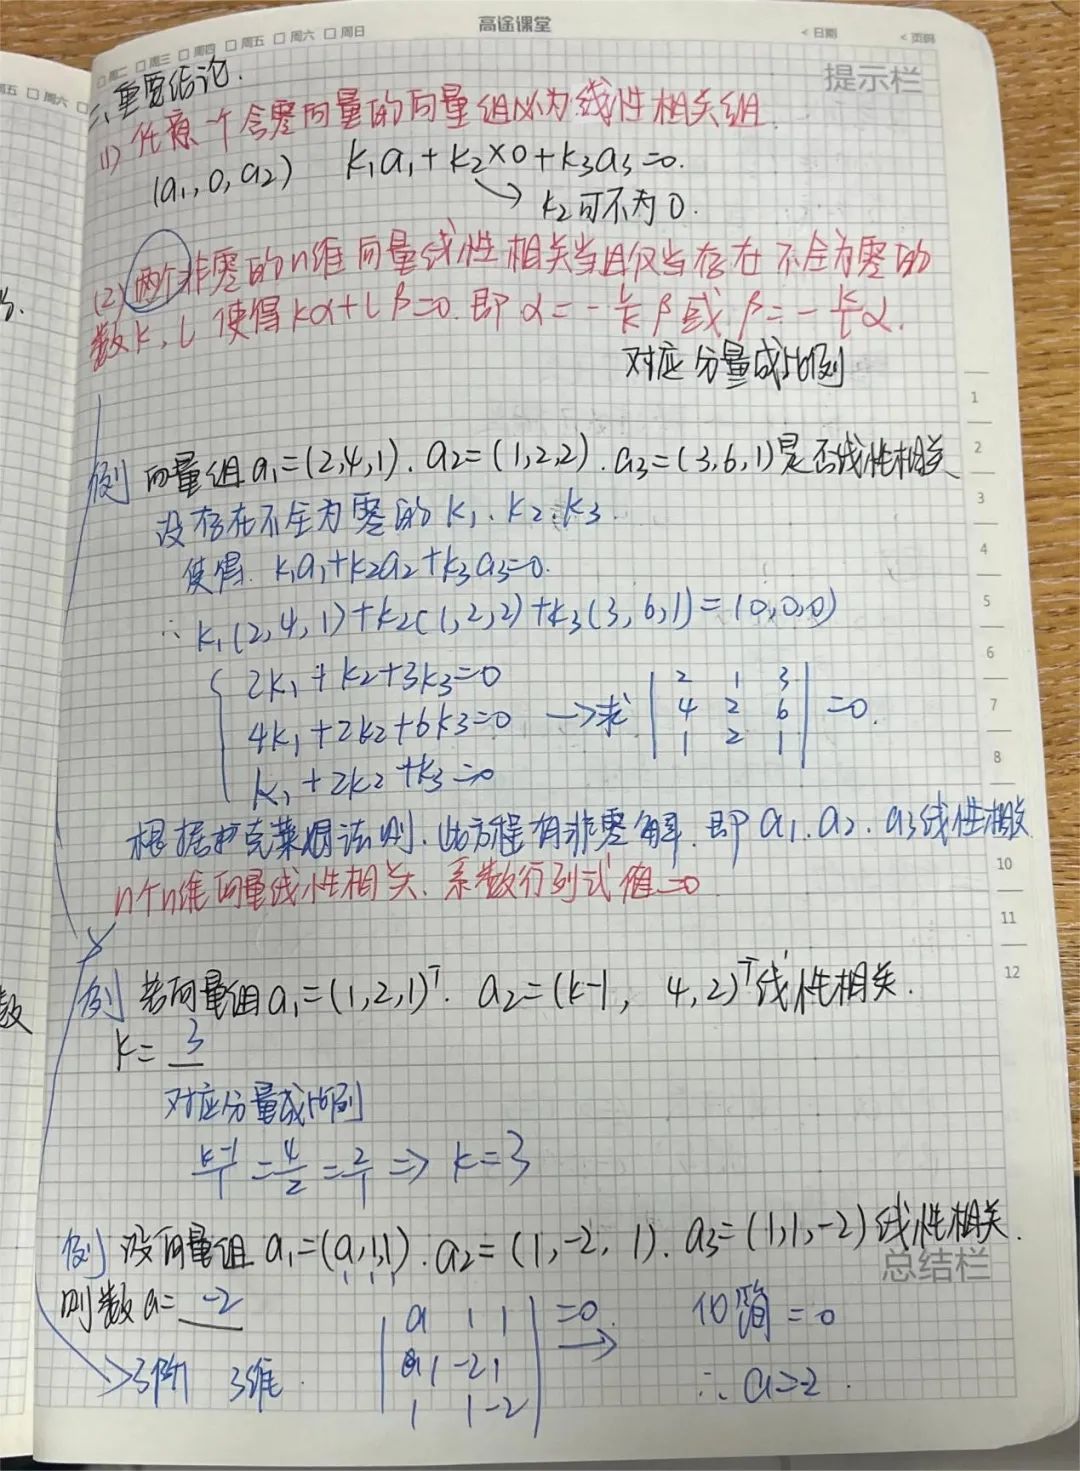 五 □ 周六 □
周二 □ 周三 □ 周四 □ 周五 □ 周六 □ 周日
高途课堂
< 日期
< 页码
提示栏
二、重要结论.
(1) 任意一个含零向量的向量组必为线性相关组.
(a₁, 0, a₂) k₁a₁+k₂×0+k₃a₃=0.
→ k₂可不为0.
(2) 两个非零的n维向量线性相关当且仅当存在不全为零的
数k, l 使得kα+lβ=0. 即α=-l/kβ或β=-k/lα.
对应分量成比例
例 向量组a₁=(2,4,1). a₂=(1,2,2). a₃=(3,6,1)是否线性相关
设存在不全为零的k₁.k₂.k₃.
使得. k₁a₁+k₂a₂+k₃a₃=0.
∴ k₁(2,4,1)+k₂(1,2,2)+k₃(3,6,1)=(0,0,0)
2k₁+k₂+3k₃=0
4k₁+2k₂+6k₃=0 →求
k₁+2k₂+k₃=0
| 2 1 3 |
| 4 2 6 | =0.
| 1 2 1 |
根据扩克莱姆法则. 此方程有非零解. 即a₁.a₂.a₃线性相关.
n个n维向量线性相关、系数行列式值=0
例 若向量组a₁=(1,2,1)ᵀ. a₂=(k-1, 4,2)ᵀ线性相关.
k= 3
对应分量成比例
k-1/1=4/2=2/1 ⇒ k=3
例 设向量组a₁=(a,1,1). a₂=(1,-2,1). a₃=(1,1,-2)线性相关.
则数a= -2
| a 1 1 |
| 1 -2 1 | =0. →
| 1 1 -2 |
化简=0
∴a=-2.
→3阶 3维.
总结栏
1
2
3
4
5
6
7
8
10
11
12
数